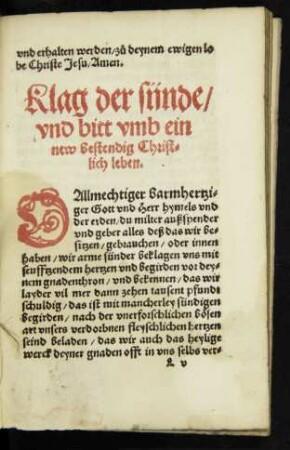 vnd erhalten werden/ zů deynem ewigen lo
be Christe Jesu/ Amen.
Klag der sünde/
vnd bitt vmb ein
new bestendig Christ-
lich leben.
O Allmechtiger barmhertzi-
ger Gott vnd Herr hymels vnd
der erden/ du milter außspender
vnd geber alles deß das wir be-
sitzen/ gebrauchen/ oder innen
haben/ wir arme sünder beklagen vns mit
seufftzendem hertzen vnd begirden vor dey-
nem gnadenthron/ vnd bekennen/ das wir
layder vil mer dann zehen tausent pfundt
schuldig/ das ist mit mancherley sündigen
begirden/ nach der vnerforschlichen bösen
art vnsers verdorbnen fleyschlichen hertzen
seind beladen/ das wir auch das heylige
werck deyner gnaden offt in vns selbs ver-
L v